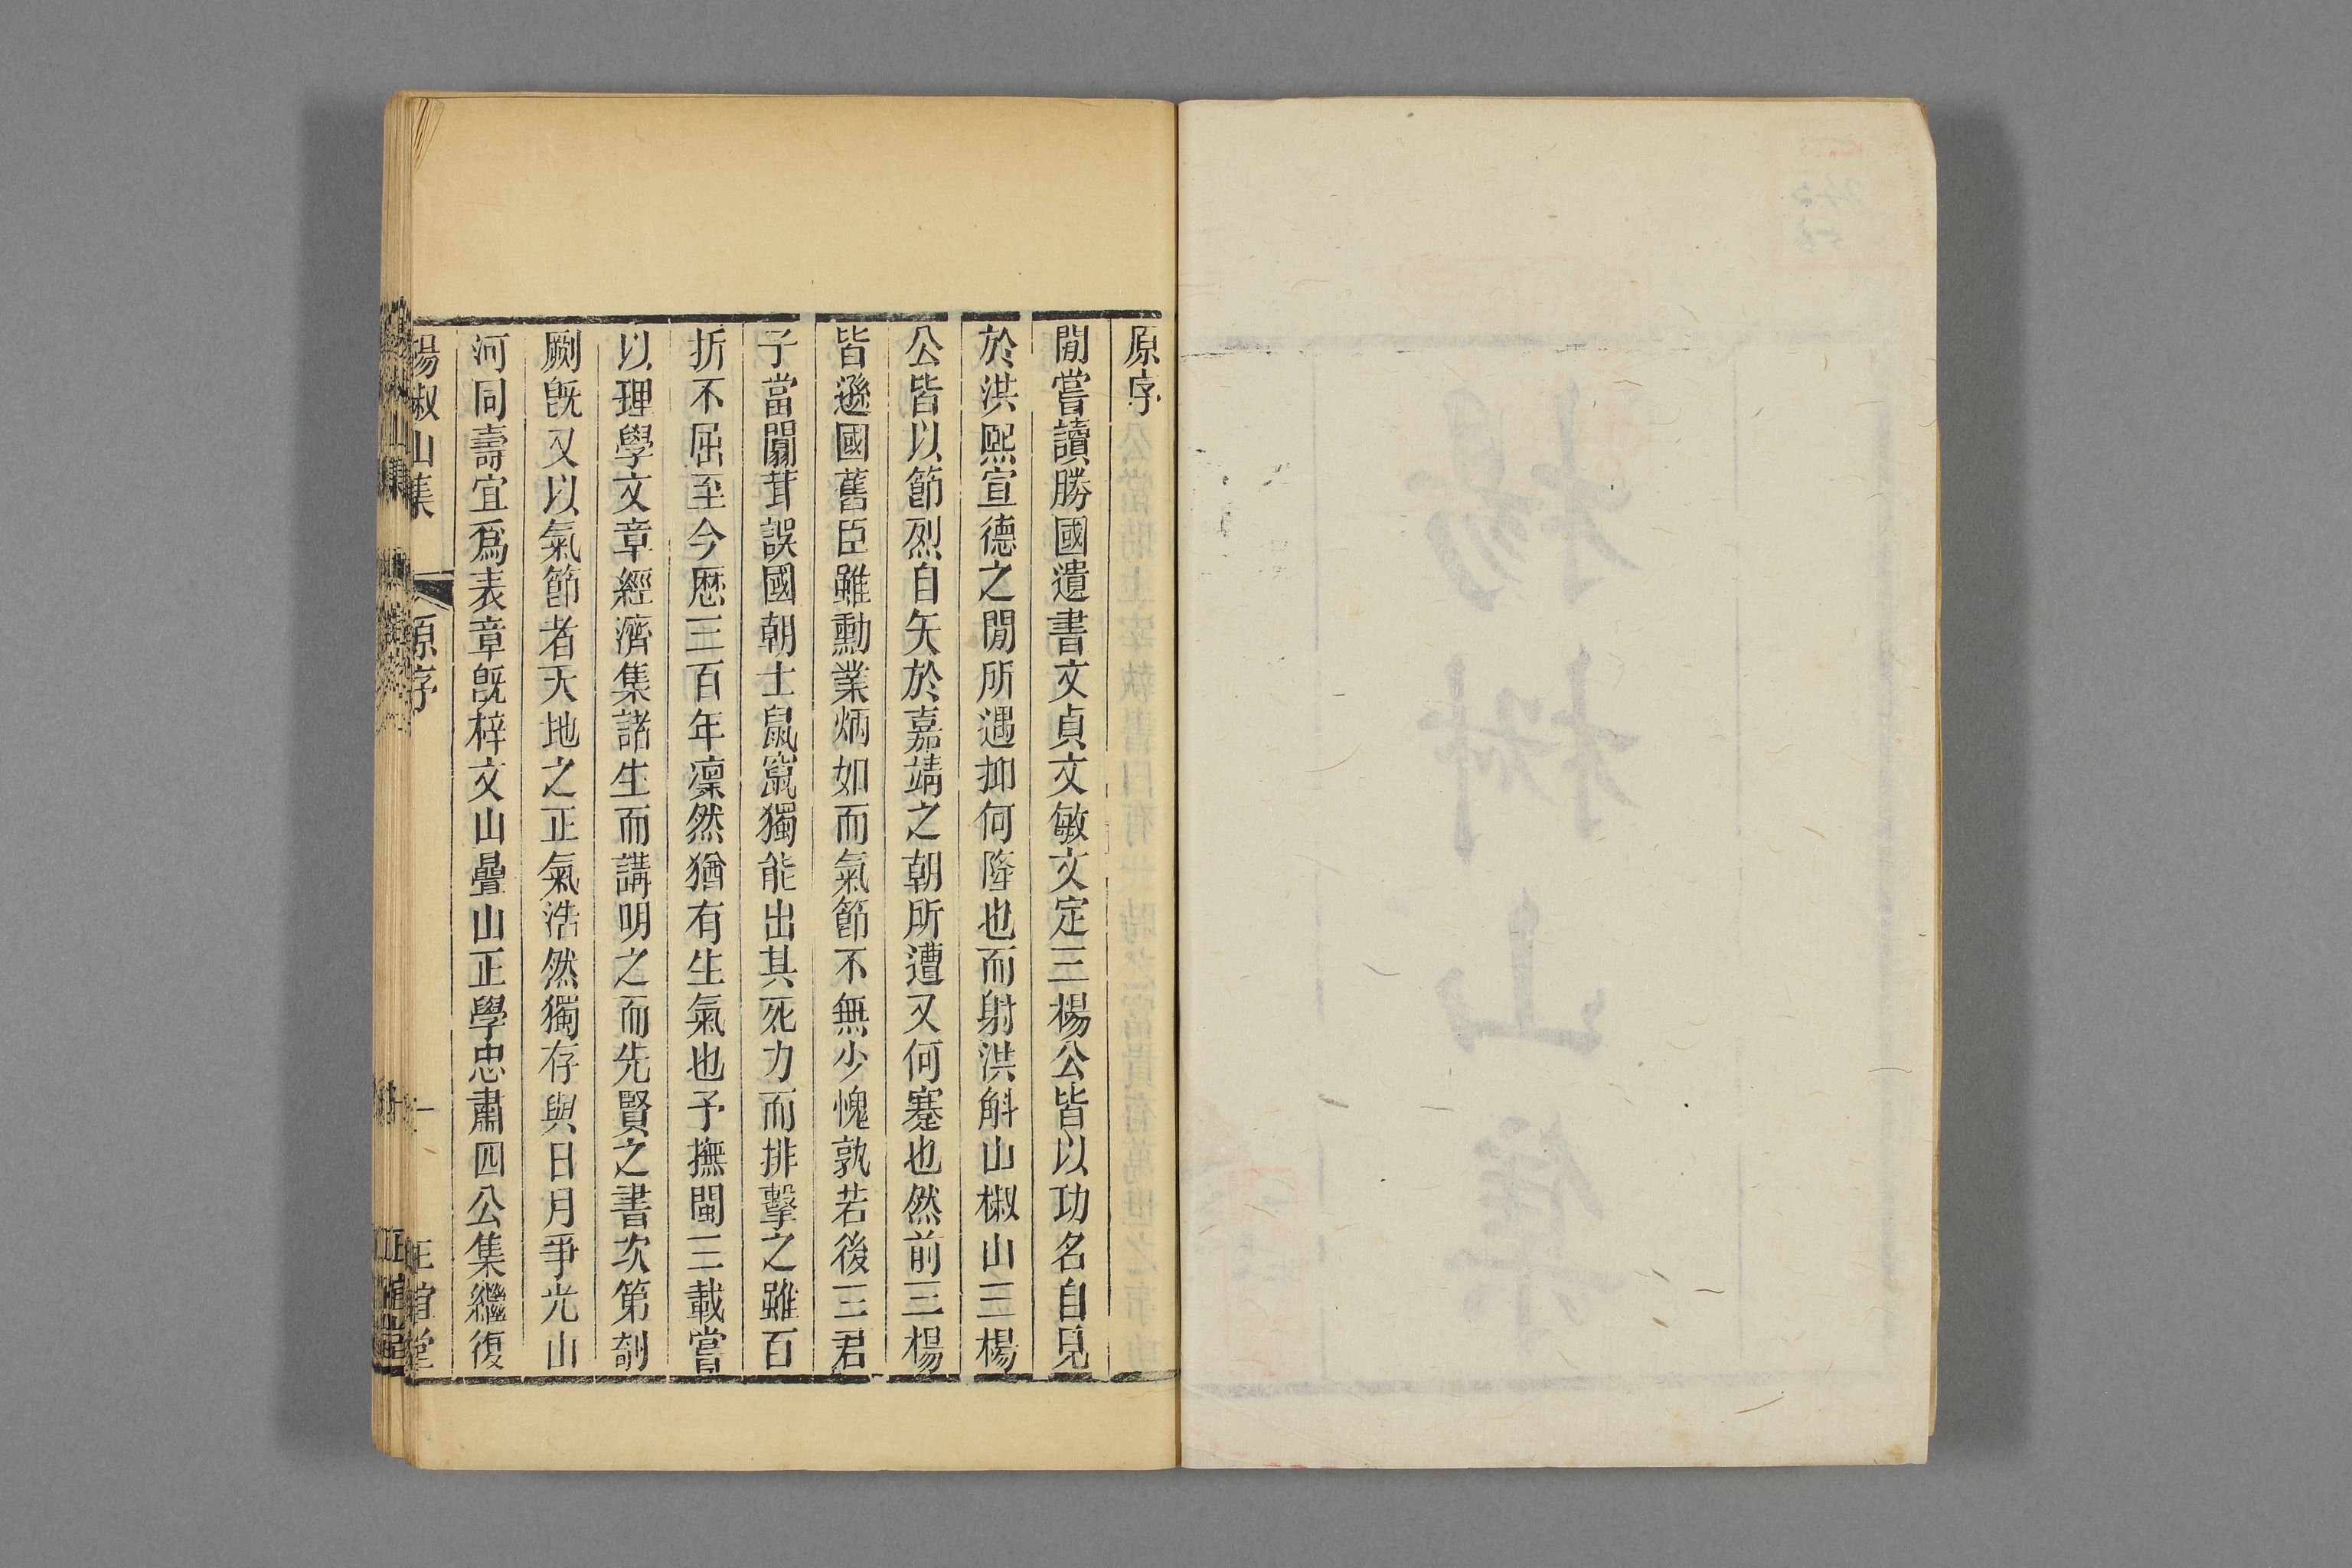 原序
閒嘗讀勝國遺書文貞文敏文定三楊公皆以功名自見
於洪熙宣德之閒所遇抑何隆也而射洪斛山椒山三楊
公皆以節烈自矢於嘉靖之朝所遭又何蹇也然前三楊
皆遜國舊臣雖勳業炳如而氣節不無少愧孰若後三君
子當闒茸誤國朝士鼠竄獨能出其死力而排擊之雖百
折不屈至今歷三百年凜然猶有生氣也予撫閩三載嘗
以理學文章經濟集諸生而講明之而先賢之書次第剞
劂旣又以氣節者天地之正氣浩然獨存與日月爭光山
河同壽宜爲表章旣梓文山疊山正學忠肅四公集繼復
楊椒山集 原序 一 正誼堂